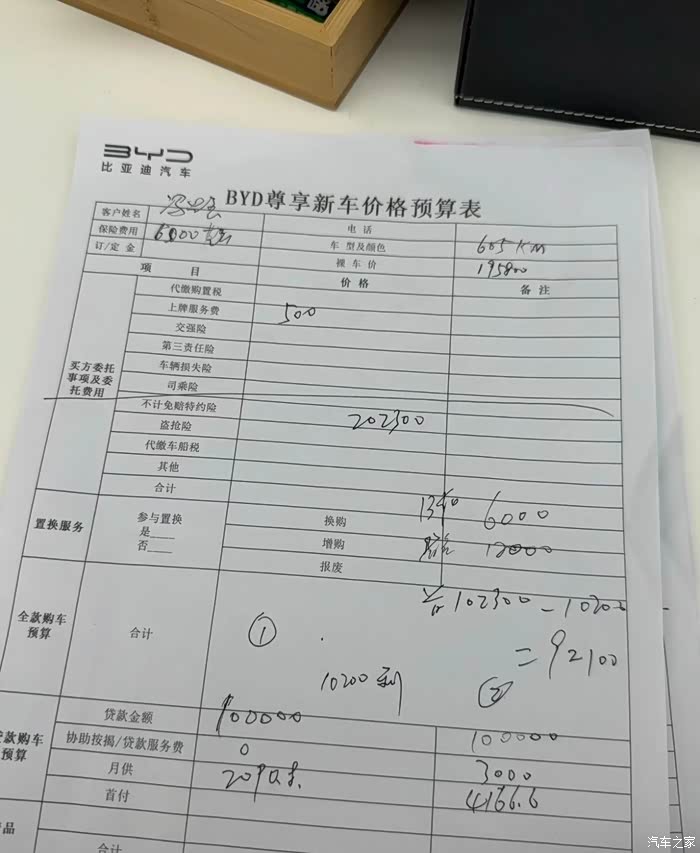 BYD
比亚迪汽车
BYD尊享新车价格预算表
客户姓名 电话
保险费用 6000 车型及颜色 605KM
订/定金 裸车价 195800
项目 价格 备注
买方委托事项及委托费用
代缴购置税
上牌服务费 500
交强险
第三责任险
车辆损失险
司乘险
不计免赔特约险
盗抢险 202300
代缴车船税
其他
合计
置换服务 参与置换 是____ 否____
换购 6000
增购 12000
报废
102300 - 10200
= 92100
全款购车预算 合计 ①
10200 ②
款购车预算
贷款金额 100000 100000
协助按揭/贷款服务费 0 3000
月供 4166.6
首付
品
合计
汽车之家